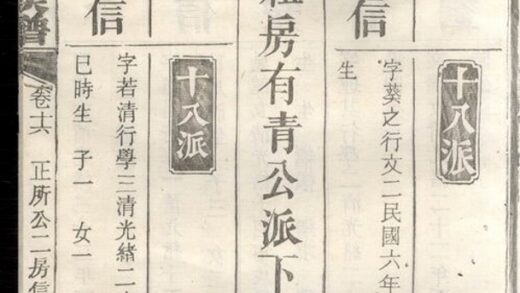 十八派
信
字葵之行文二民國六年
生
房有青公派下
十八派
信
字若清行學三清光緒二
巳時生 子一 女一
譜 卷十六 正所公二房信